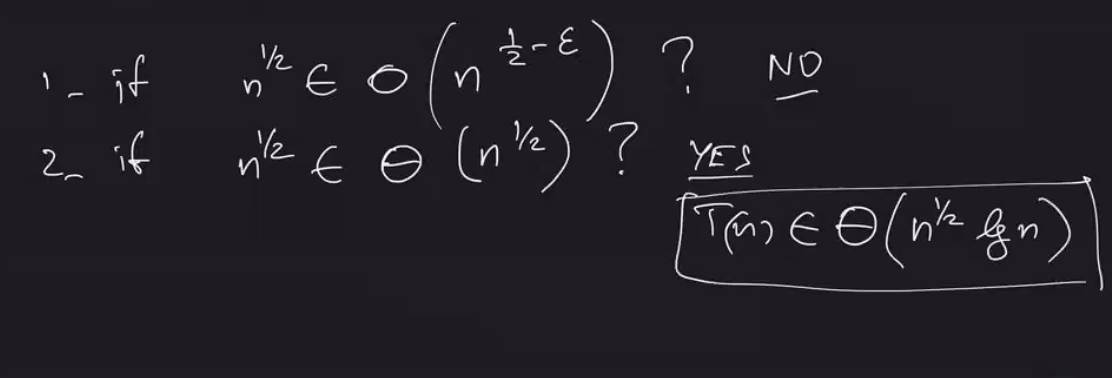 1- if n^{1/2} ∈ O(n^{1/2-ε}) ? NO
2- if n^{1/2} ∈ Θ(n^{1/2}) ? YES
T(n) ∈ Θ(n^{1/2} lg n)